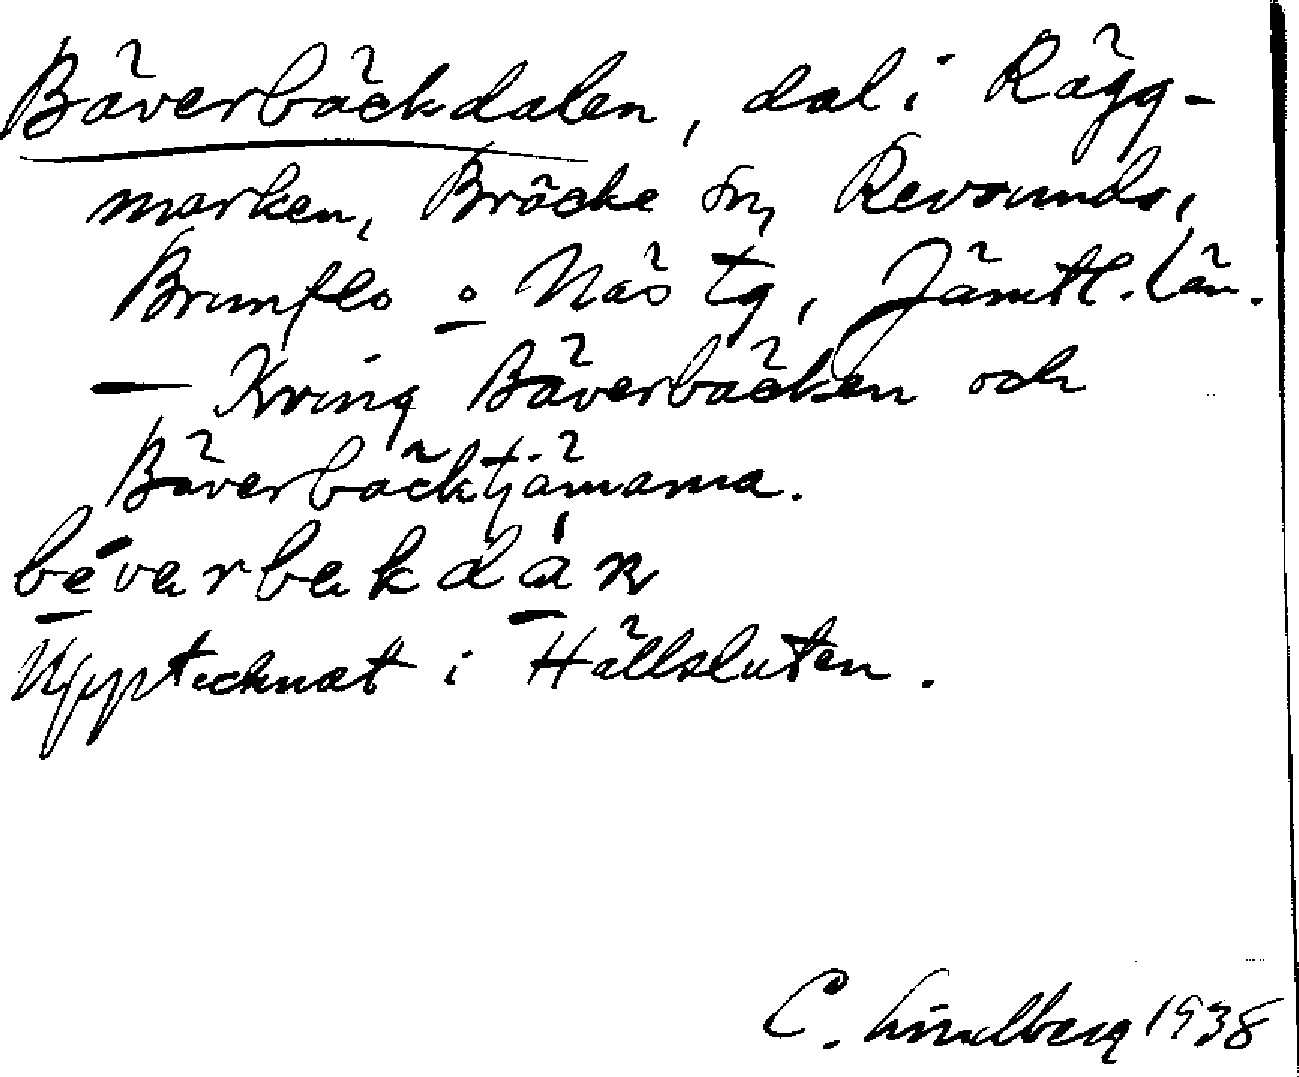 Bäverbäckdalen, dal i Rägg-
marken, Bräcke sn, Revsunds,
Brunflo o Näs tg, Jämtl. län.
— Kring Bäverbäcken och
Bäverbäcktjärnarna.
bèvarbakdán
Upptecknat i Hällsluten.
C. Lindberg 1938